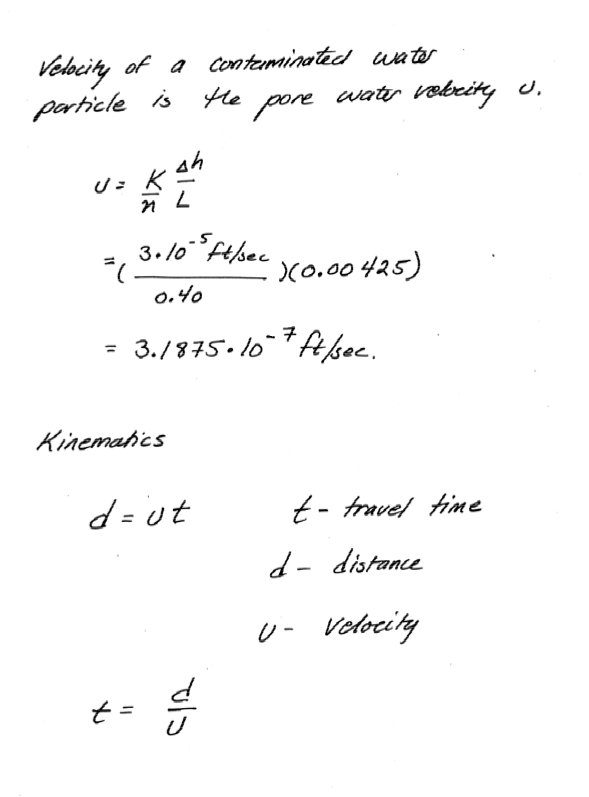 Velocity of a contaminated water
particle is the pore water velocity v.
v = K/n Δh/L
= (3·10⁻⁵ ft/sec / 0.40)(0.00425)
= 3.1875·10⁻⁷ ft/sec.
Kinematics
d = vt t - travel time
d - distance
v - velocity
t = d/v